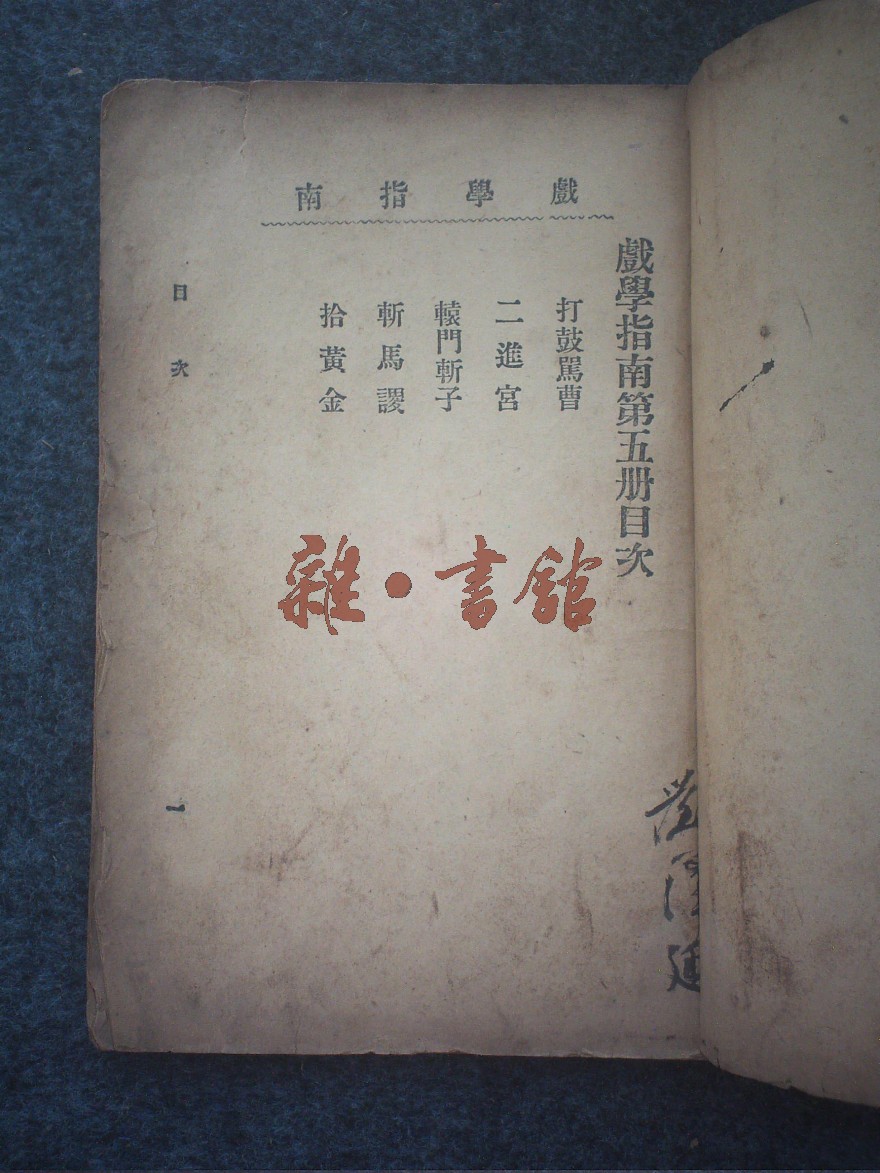 戲學指南
戲學指南第五册目次
打鼓駡曹
二進宮
轅門斬子
斬馬謖
拾黃金
目次
一
雜·書館